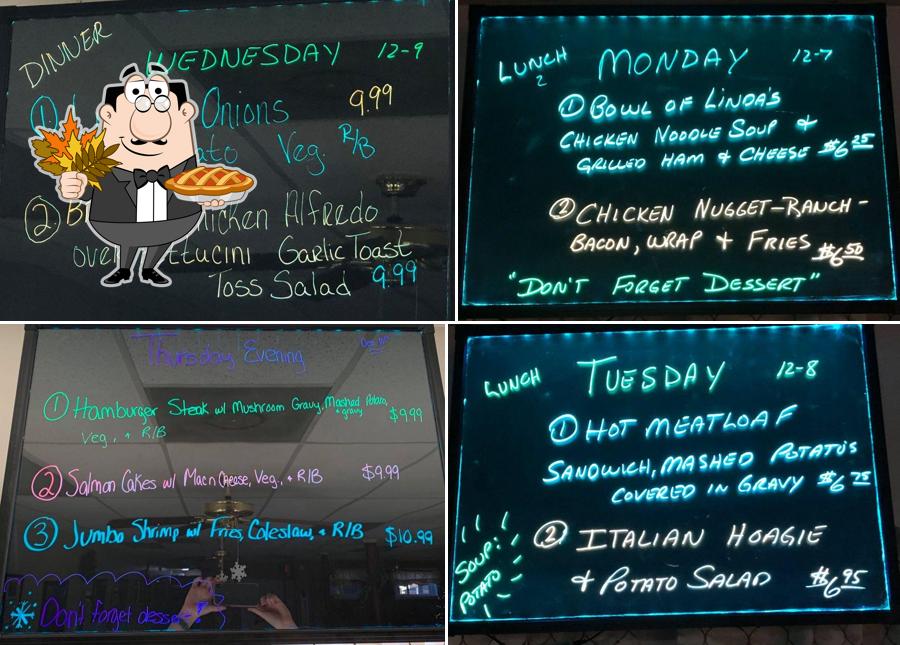 DINNER
WEDNESDAY 12-9
① Onions 9.99
ato Veg. R/B
② hicken Alfredo
over ttucini Garlic Toast
Toss Salad 9.99
LUNCH
2
MONDAY 12-7
① BOWL OF LINDA'S
CHICKEN NOODLE SOUP &
GRILLED HAM & CHEESE $6 25
② CHICKEN NUGGET-RANCH-
BACON, WRAP & FRIES $6 50
"DON'T FORGET DESSERT"
Thursday Evening
① Hamburger Steak w/ Mushroom Gravy, Mashed Potato, + gravy $9.99
Veg., + R/B
② Salmon Cakes w/ Mac n Cheese, Veg., + R/B $9.99
③ Jumbo Shrimp w/ Fries, Coleslaw, + R/B $10.99
Don't forget dessert!
LUNCH
TUESDAY 12-8
① HOT MEATLOAF
SANDWICH, MASHED POTATO'S
COVERED IN GRAVY $6 75
② ITALIAN HOAGIE
& POTATO SALAD $6 95
SOUP:
POTATO